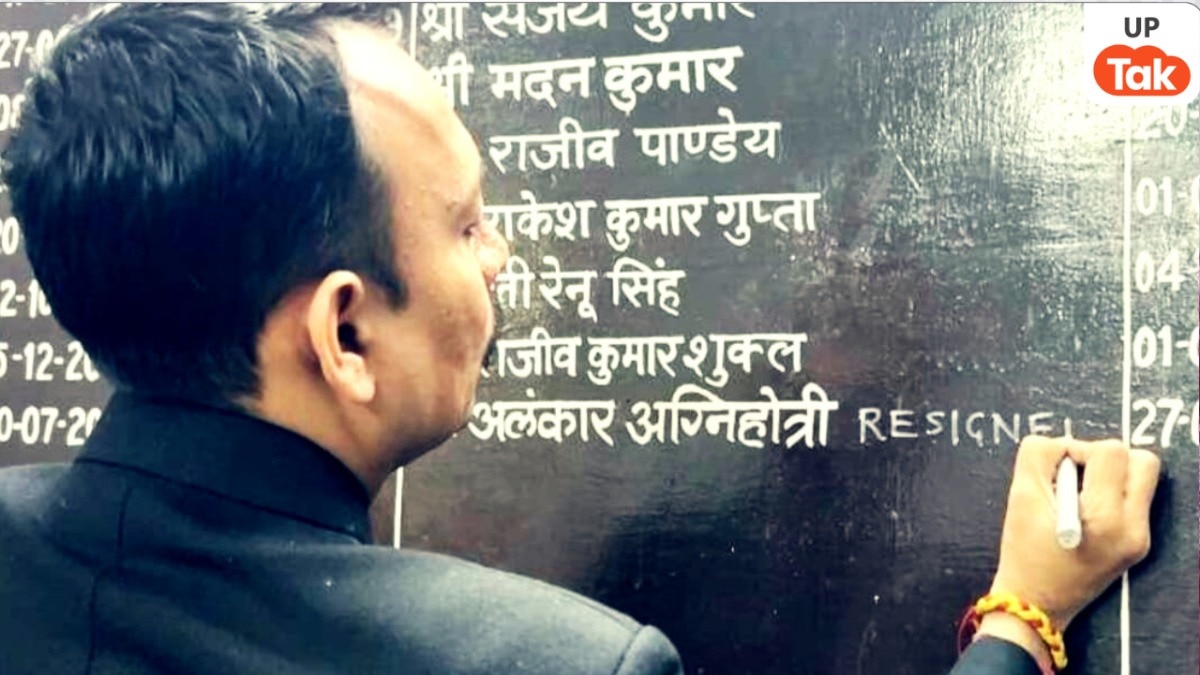 UP
Tak
27-0
श्री संजय कुमार
श्री मदन कुमार
राजीव पाण्डेय
20
राकेश कुमार गुप्ता 01-
2-1 ती रेनू सिंह 04
5-12-20 राजीव कुमार शुक्ल 01-
0-07-20 अलंकार अग्निहोत्री RESIGNE 27-